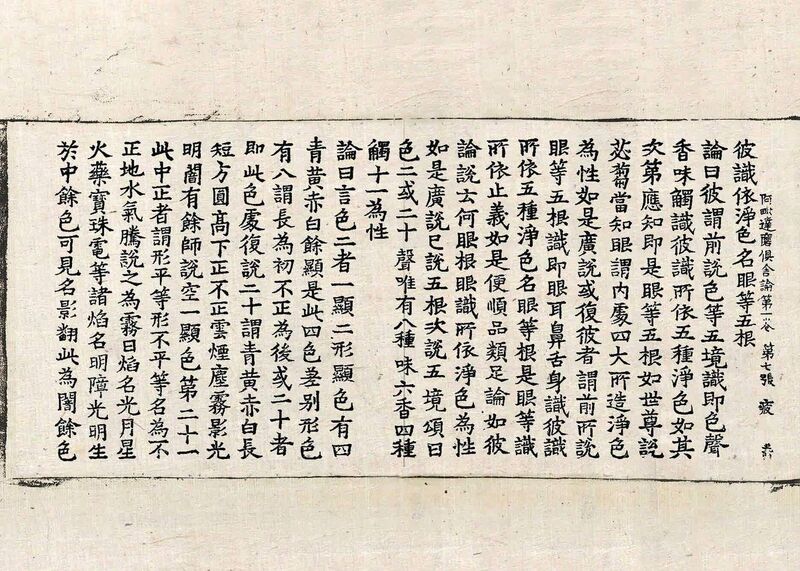 阿毗達磨俱舍論第一卷 第七張 疲
彼識依淨色名眼等五根
論曰彼謂前說色等五境識即色聲
香味觸識彼識所依五種淨色如其
次第應知即是眼等五根如世尊說
苾蒭當知眼謂內處四大所造淨色
為性如是廣說或復彼者謂前所說
眼等五根識即眼耳鼻舌身識彼識
所依五種淨色名眼等根是眼等識
所依止義如是便順品類足論如彼
論說云何眼根眼識所依淨色為性
如是廣說已說五根次說五境頌曰
色二或二十 聲唯有八種 味六香四種
觸十一為性
論曰言色二者一顯二形顯色有四
青黃赤白餘顯是此四色差別形色
有八謂長為初不正為後或二十者
即此色處復說二十謂青黃赤白長
短方圓高下正不正雲煙塵霧影光
明闇有餘師說空一顯色第二十一
此中正者謂形平等形不平等名為不
正地水氣騰說之為霧日焰名光月星
火藥寶珠電等諸焰名明障光明生
於中餘色可見名影翻此為闇餘色